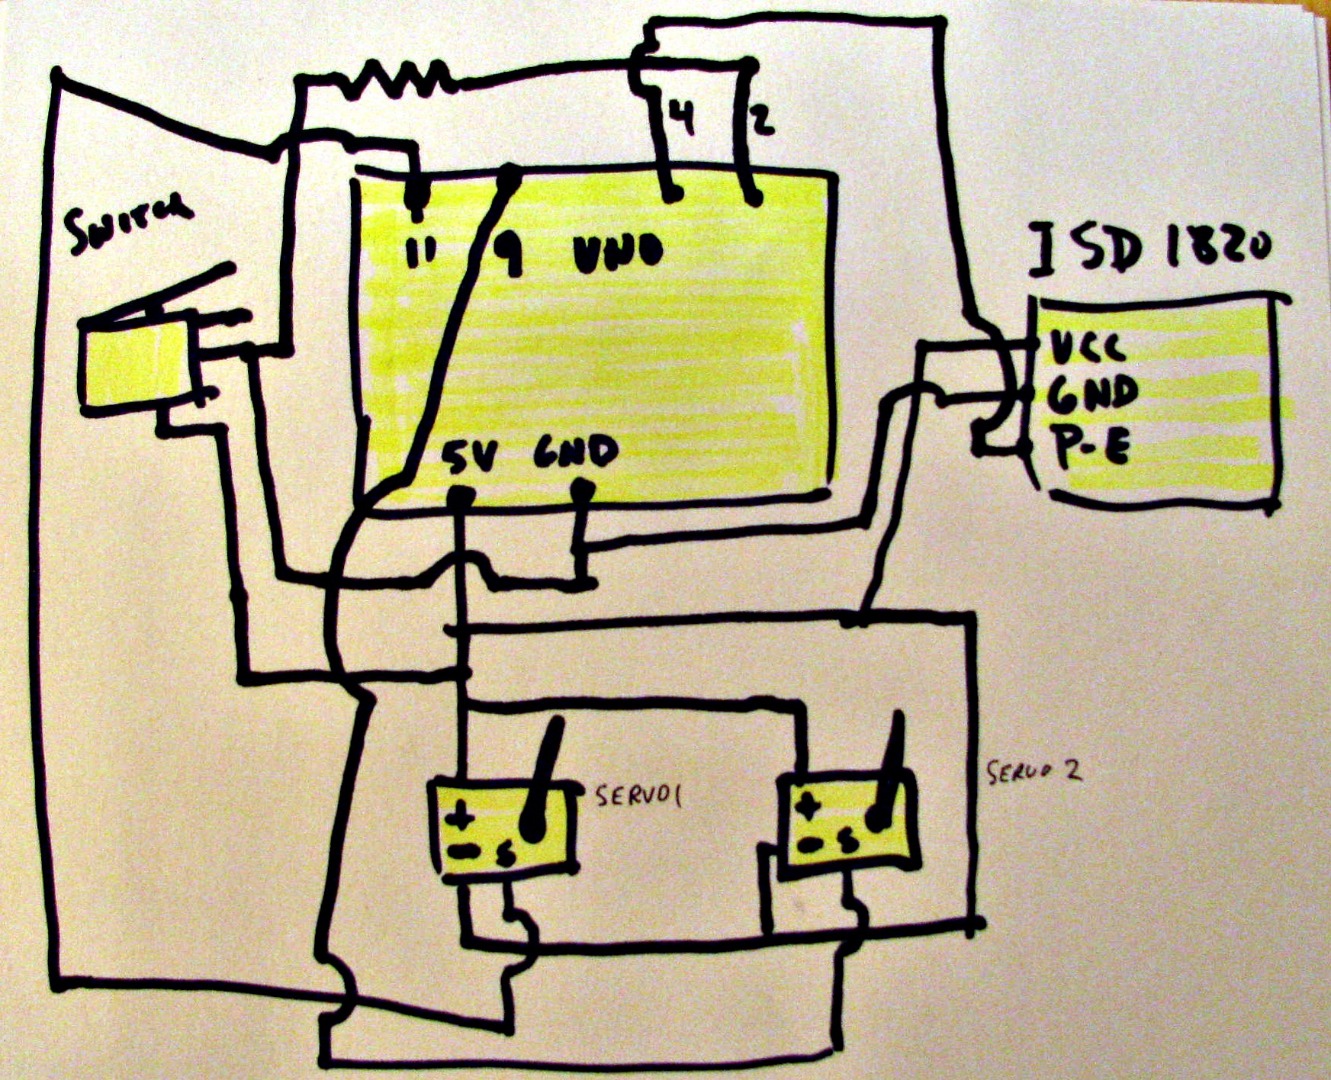 4 2
SWITCH
11 9 UNO
ISD 1820
VCC
GND
P-E
5V GND
SERVO 1
SERVO 2
+
- S
+
- S